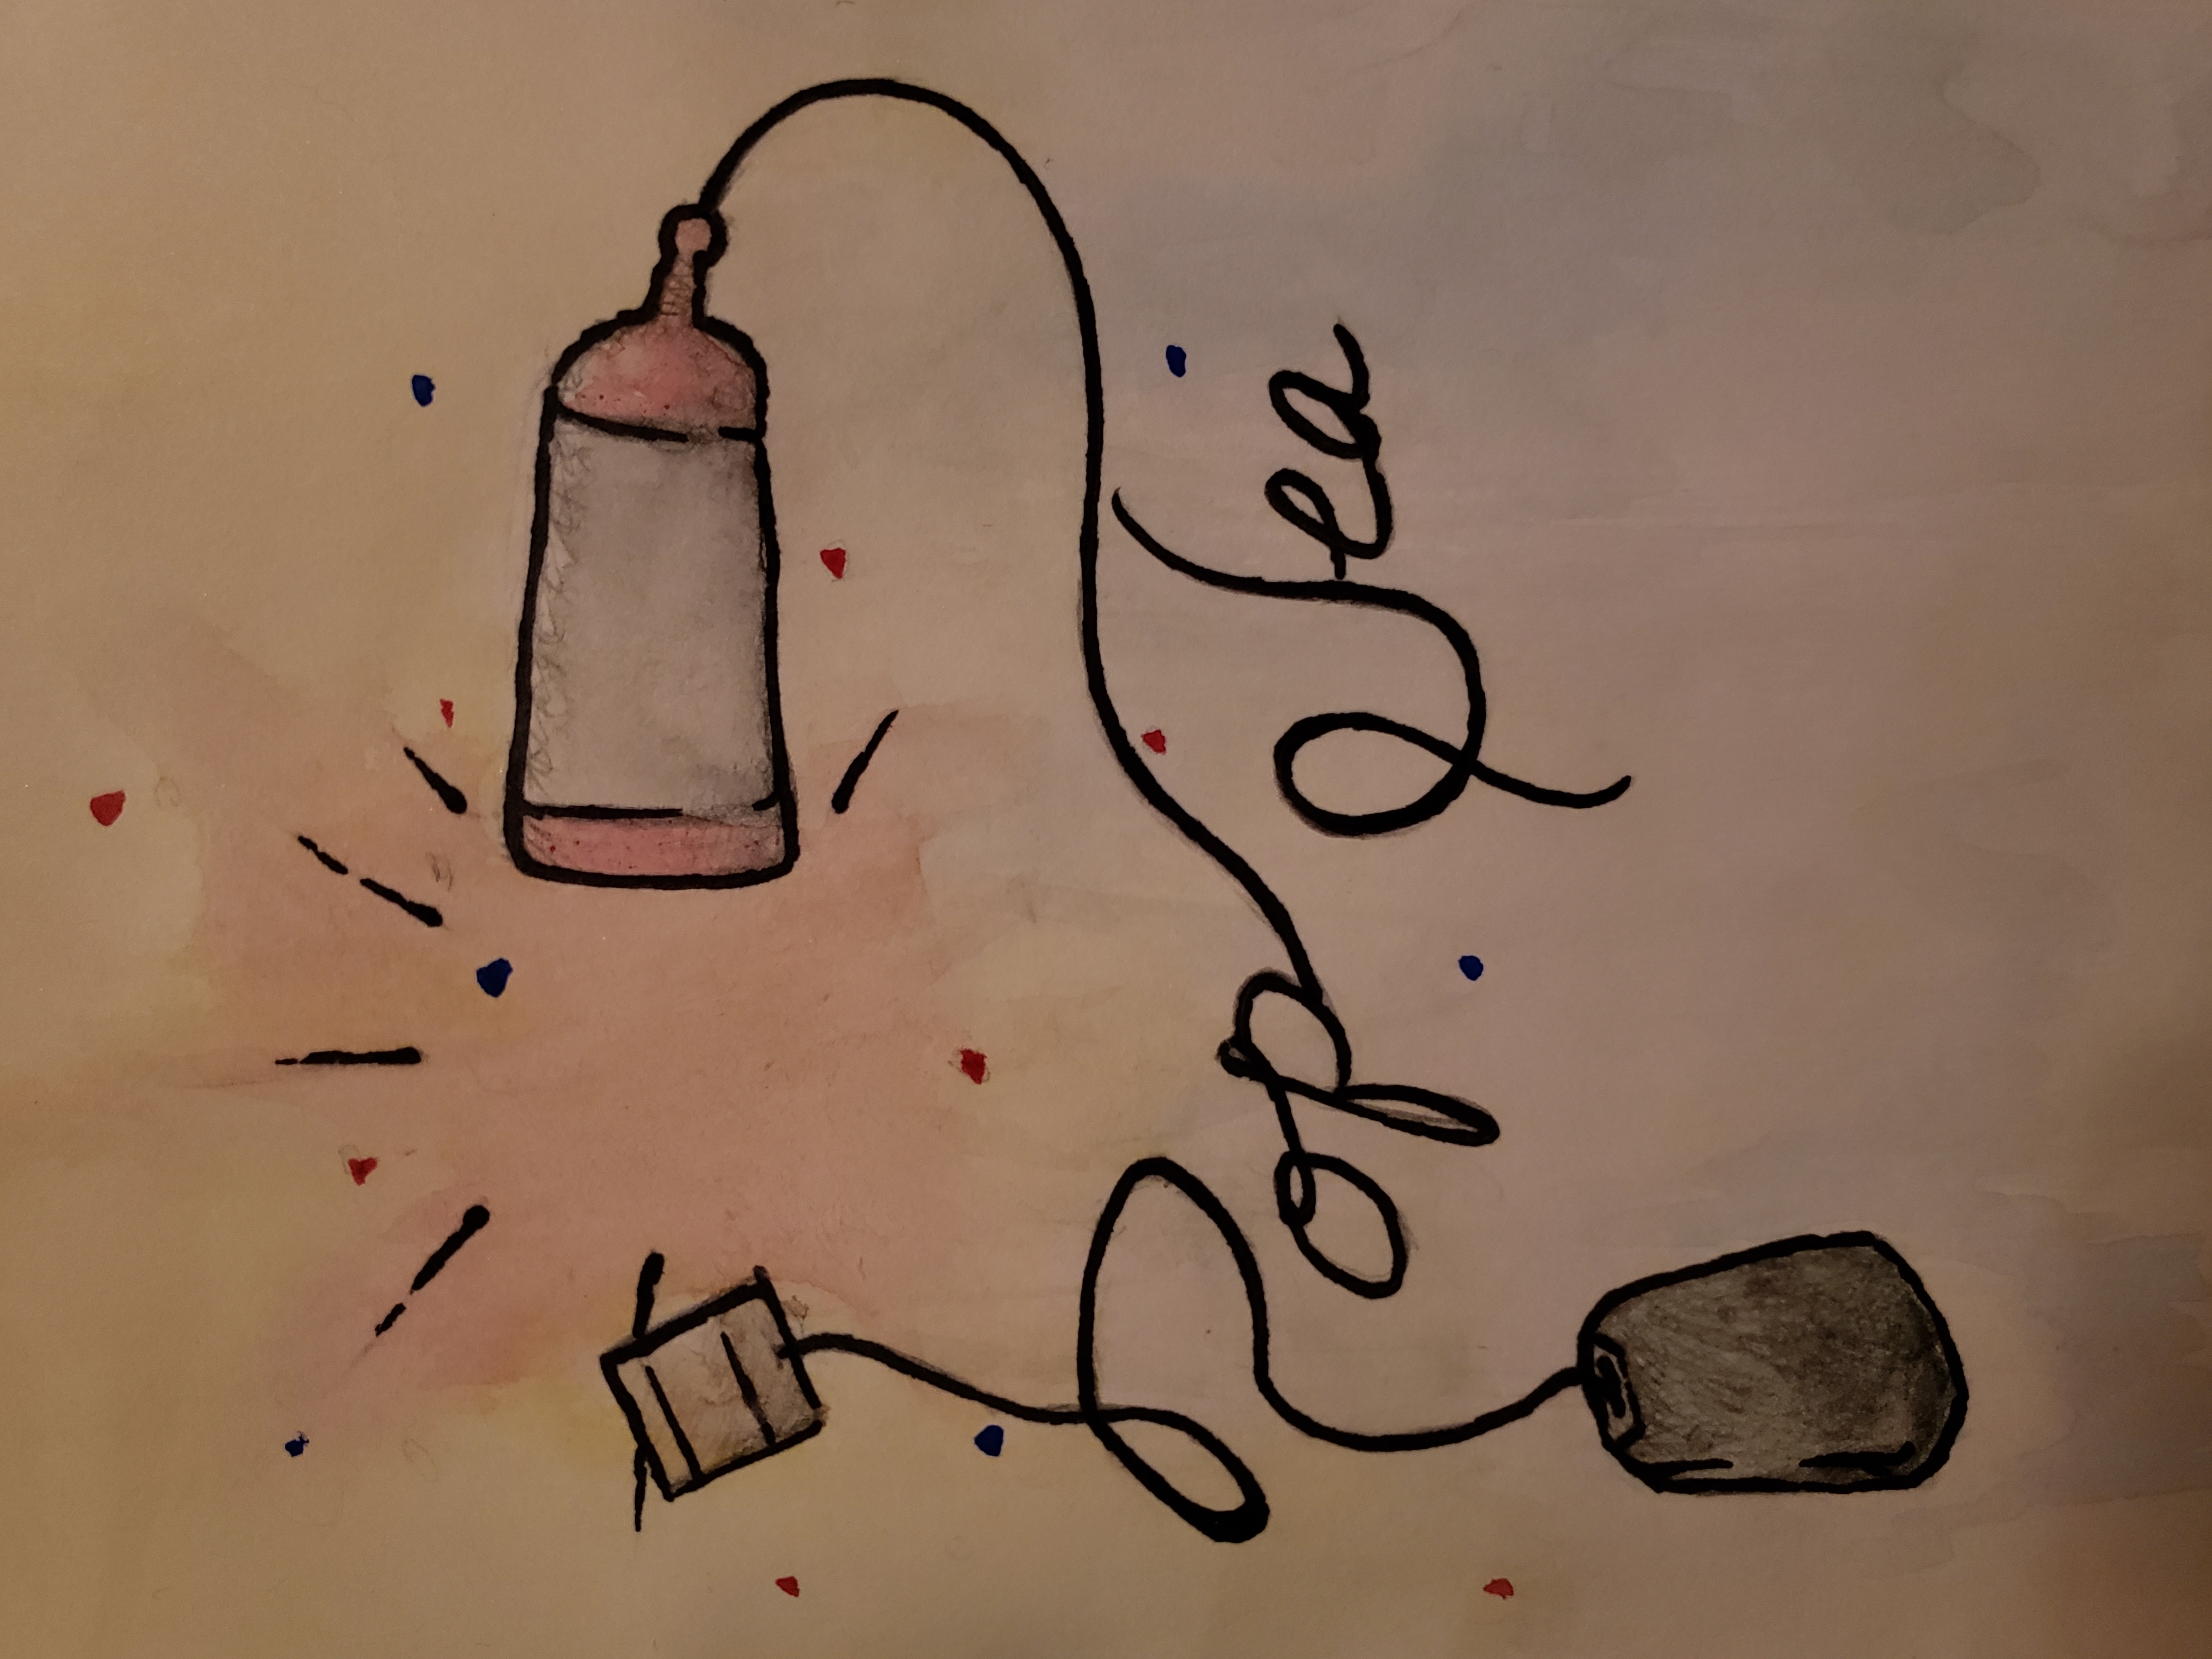 Pop Tea